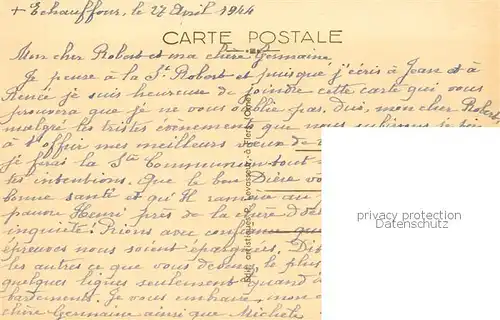 + Echauffour, le 27 Avril 1944
CARTE POSTALE
Mon cher Robert et ma chère Germaine,
Je pense à la St Robert et puisque j'écris à Jean et à
Renée je suis heureuse de joindre cette carte qui vous
prouvera que je ne vous oublie pas. Oui, mon cher Robert,
malgré les tristes évènements que nous subissons je
à t'offrir mes meilleurs vœux de
je ferai la Ste Communion
tes intentions. Que le bon Dieu
bonne santé et qu'Il ramène au
pauvre Henri près de la
inquiète! Prions avec confiance que
épreuves nous soient épargnées.
les autres ce que vous devenez, le plus
quelques lignes seulement quand
bardements. Je vous embrasse, mon
chère Germaine ainsi que Michèle
privacy protection
Datenschutz